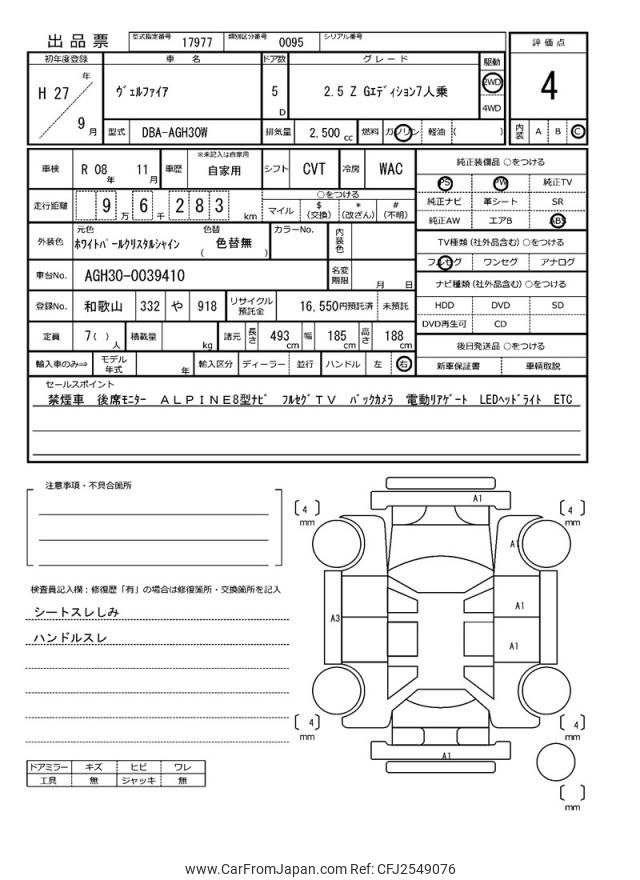 出品票 型式指定番号 17977 類別区分番号 0095 シリアル番号
評価点
4
初年度登録 車名 ドア数 グレード 駆動
H 27 年 9 月
ヴェルファイア 5 D 2.5 Z Gエディション7人乗 2WD 4WD
型式 DBA-AGH30W 排気量 2,500 cc 燃料 ガソリン 軽油 ( )
内装 A B C
車検 R 08 年 11 月 車歴 ※未記入は自家用 自家用 シフト CVT 冷房 WAC
純正装備品 ○をつける
PS PW 純正TV
純正ナビ 革シート SR
純正AW エアB ABS
走行距離 9 万 6 千 2 8 3 km
○をつける
マイル $(交換) *(改ざん) #(不明)
外装色 元色 ホワイトパールクリスタルシャイン 色替 ( 色替無 ) カラーNo. 内装色
TV種類(社外品含む) ○をつける
フルセグ ワンセグ アナログ
車台No. AGH30-0039410 名変期限 月 日
ナビ種類(社外品含む) ○をつける
HDD DVD SD
DVD再生可 CD
登録No. 和歌山 332 や 918 リサイクル預託金 16,550円預託済 未預託
定員 7( )人 積載量 kg 諸元 長さ 493 cm 幅 185 cm 高さ 188 cm
後日発送品 ○をつける
新車保証書 車輌取説
輸入車のみ⇒ モデル年式 年 輸入区分 ディーラー 並行 ハンドル 左 右
セールスポイント
禁煙車 後席モニター ALPINE8型ナビ フルセグTV バックカメラ 電動リアゲート LEDヘッドライト ETC
注意事項・不具合箇所
検査員記入欄:修復歴「有」の場合は修復箇所・交換箇所を記入
シートスレしみ
ハンドルスレ
ドアミラー キズ ヒビ ワレ
工具 無 ジャッキ 無
A1
4 mm
4 mm
A1
A1
A3
A1
4 mm
4 mm
A1
mm
www.CarFromJapan.com Ref: CFJ2549076